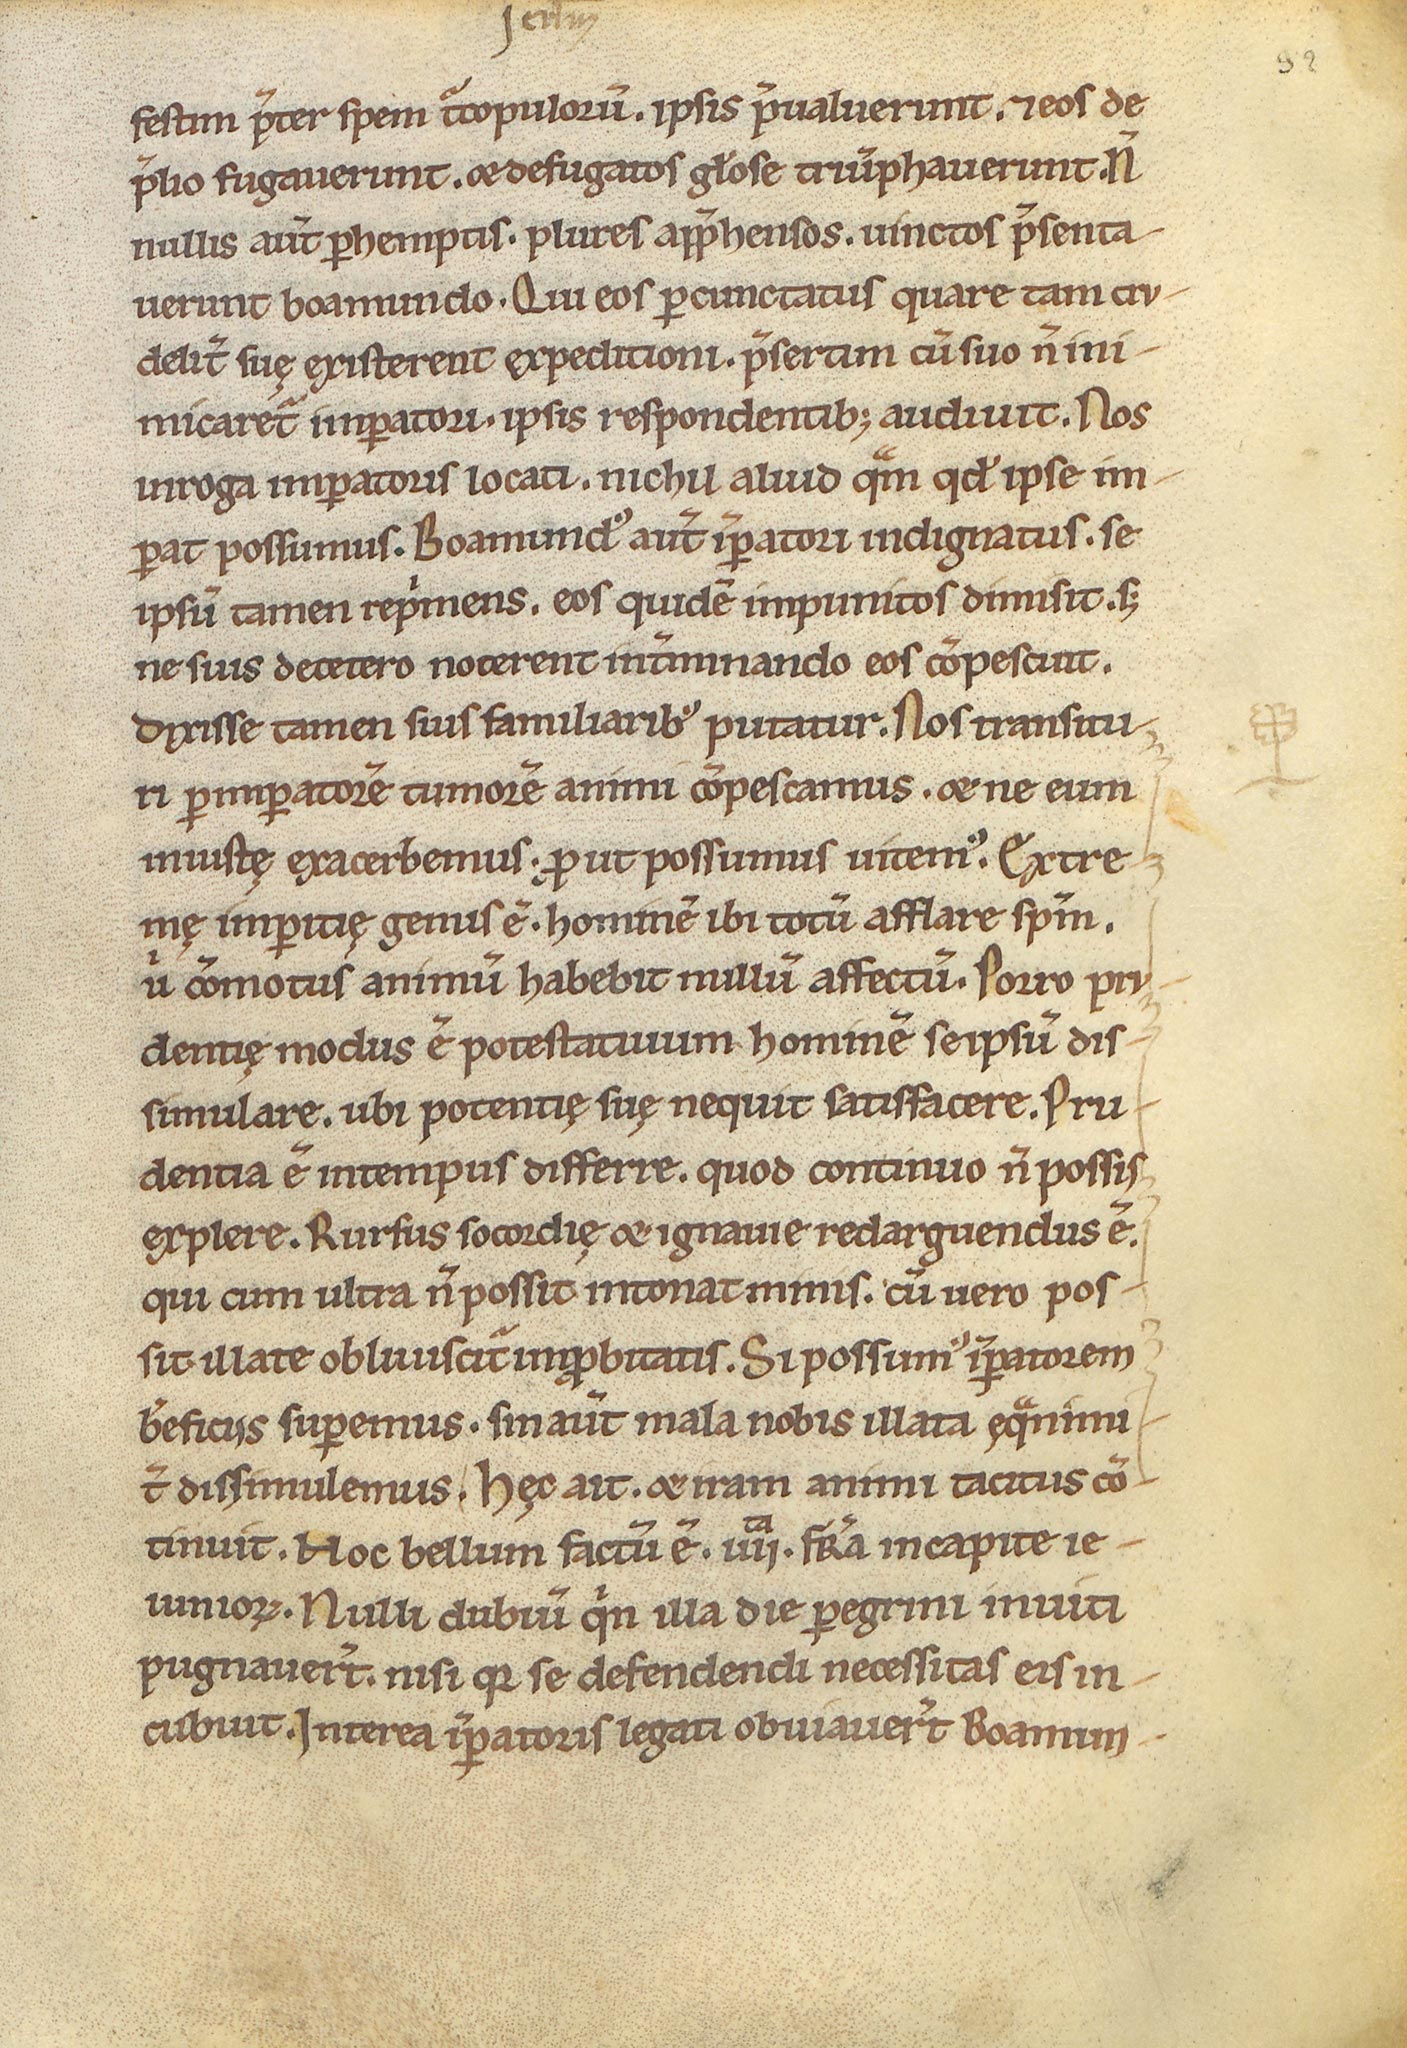 festim p̄ter spem t̾copulorū. ipsis p̄ualuerunt. ⁊ eos de
p̄lio fugauerunt. & defugatos gl̄ose triūphauerunt. N̄
nullis aut̄ ꝑhemptis. plures app̄hensos. uinctos p̄senta-
uerunt boamundo. Qui eos ꝑcunctatus quare tam cru-
delit̄ suę existerent expeditioni. p̄sertim cū suo n̄ ini-
micaret̾ imꝑatori. ipsis respondentib; audiuit. Nos
inroga imꝑatoris locati. nichil aliud qᵃm qd̄ ipse im-
ꝑat possumus. Boamundꝰ aut̄ īꝑatori indignatus. se
ipsū tamen repͥmens. eos quidē impunitos dimisit. s;
ne suis decetero nocerent int̄minando eos cōpescuit.
Dixisse tamen suis familiaribꝰ putatur. Nos transitu-
ri ꝑimꝑatorē tumorē animi cōpescamus. & ne eum
iniustę exacerbemus. ꝓut possumus uitemꝰ. Extre
mę imꝑitię genus ē. hominē ibi totū afflare spm̄.
uͥ cōmotus animū habebit nullū affectū. Porro pru-
dentię modus ē potestatiuum hominē seipsū dis-
simulare. ubi potentię suę nequit satisfacere. Pru-
dentia ē intempus differre. quod continuo n̄ possis
explere. Rursus socordię & ignauie redarguendus ē.
qui cum ultra n̄ possit intonat minis. cū uero pos-
sit illate obliuiscit̾ imꝓbitatis. Si possumꝰ īꝑatorem
b̄eficiis suꝑemus. sin aut̄ mala nobis illata ęqᵃnimi-
t̄ dissimulemus. Hęc ait. & iram animi tacitus cō-
tinuit. Hoc bellum factū ē. iiij.ᵗᵃ fr̄a incapite ie-
iunioꝝ. Nulli dubiū qͥn illa die ꝑegrini inuiti
pugnauer̄t. nisi qꝛ se defendendi necessitas eis in-
cubuit. Interea īꝑatoris legati obuiauer̄t Boamun-